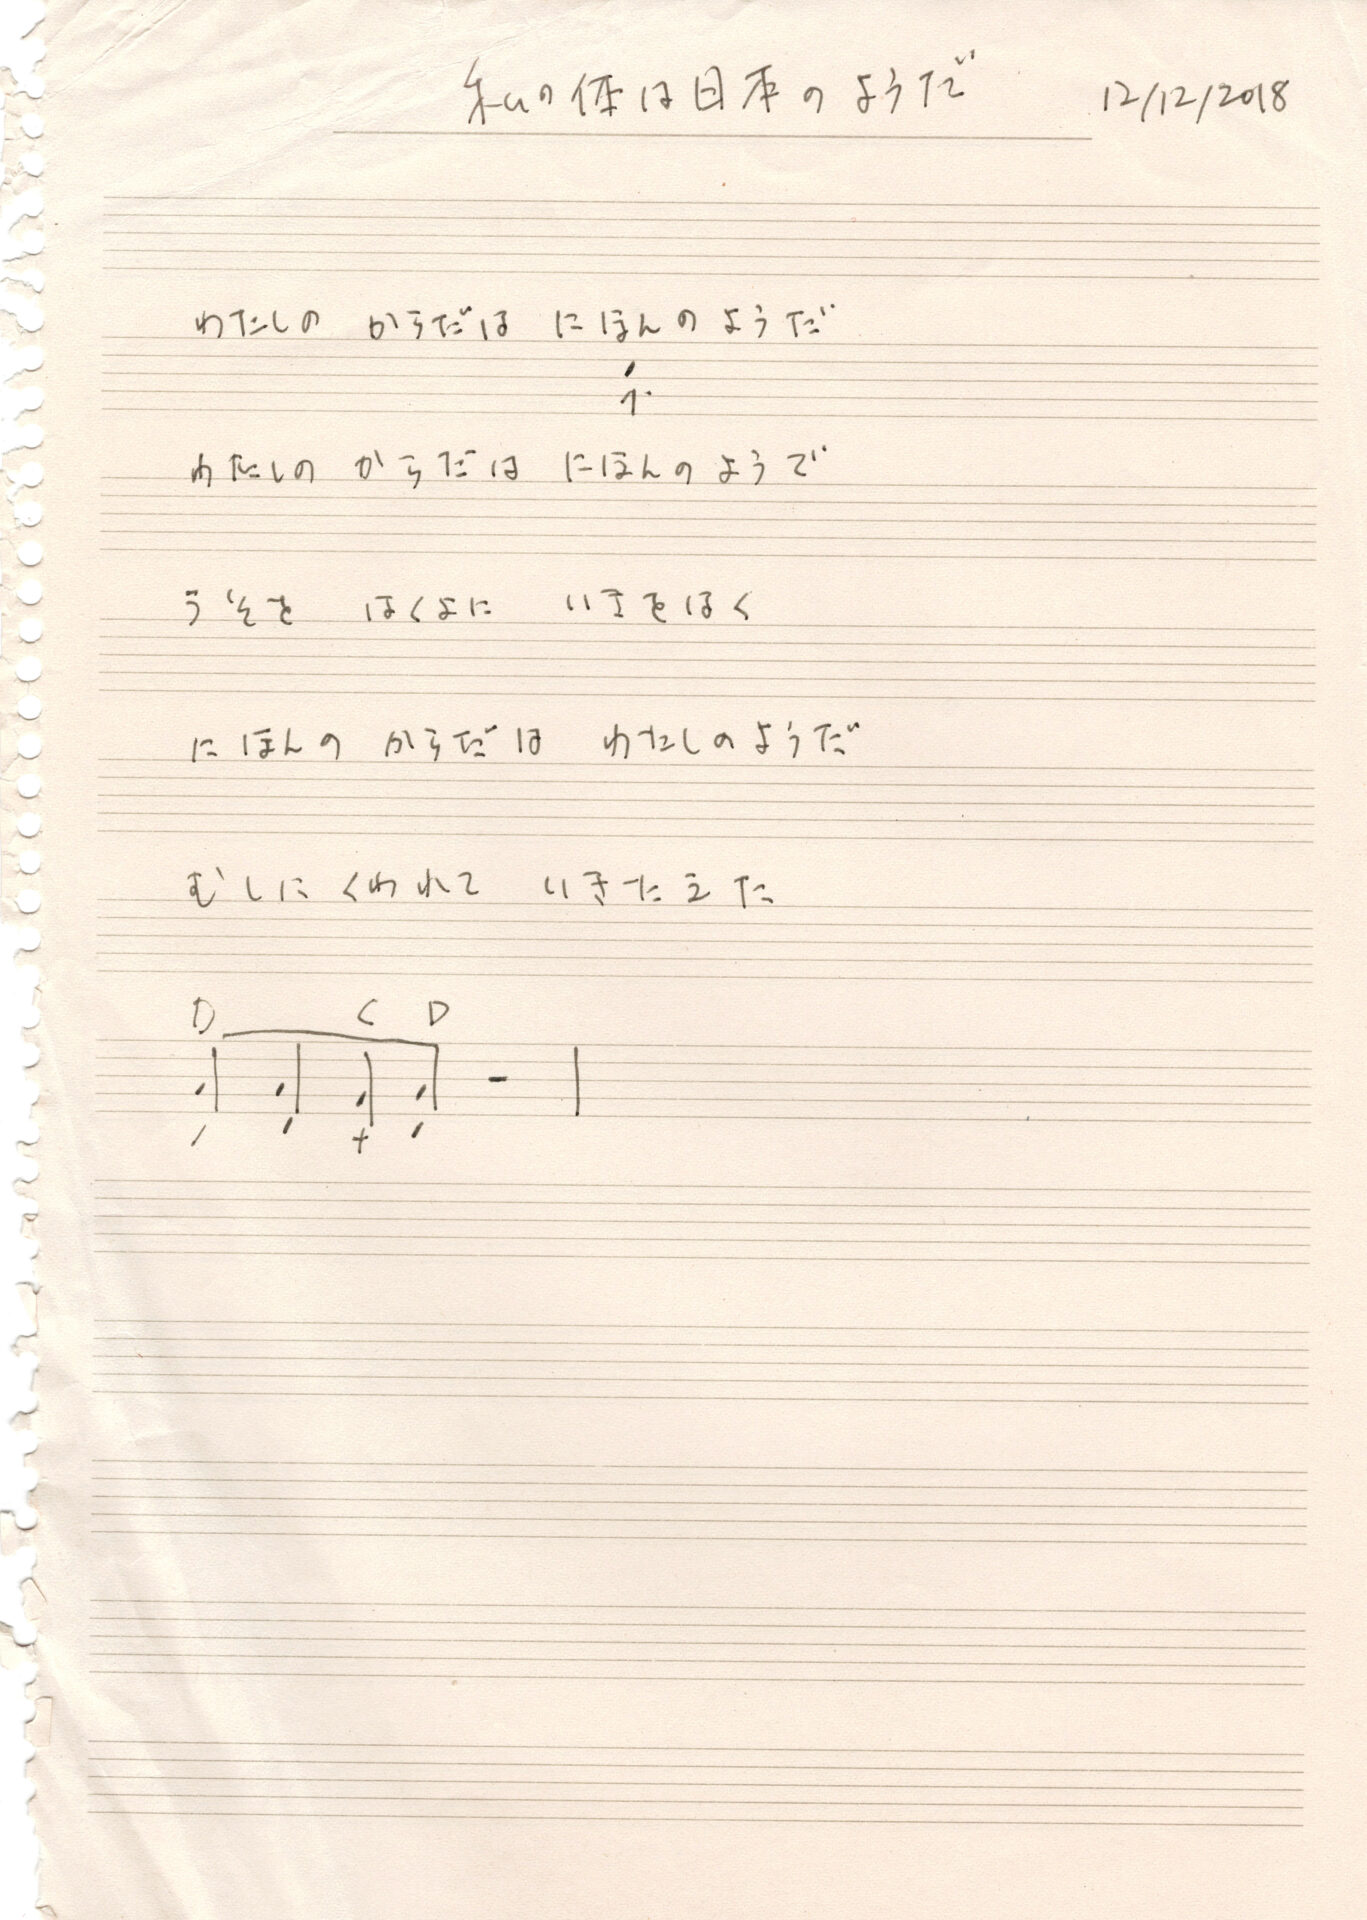 私の体は日本のようだ 12/12/2018
わたしの からだは にほんのようだ
わたしの からだは にほんのようで
うそを はくよに いきをはく
にほんの からだは わたしのようだ
むしにくわれて いきたえた
D C D